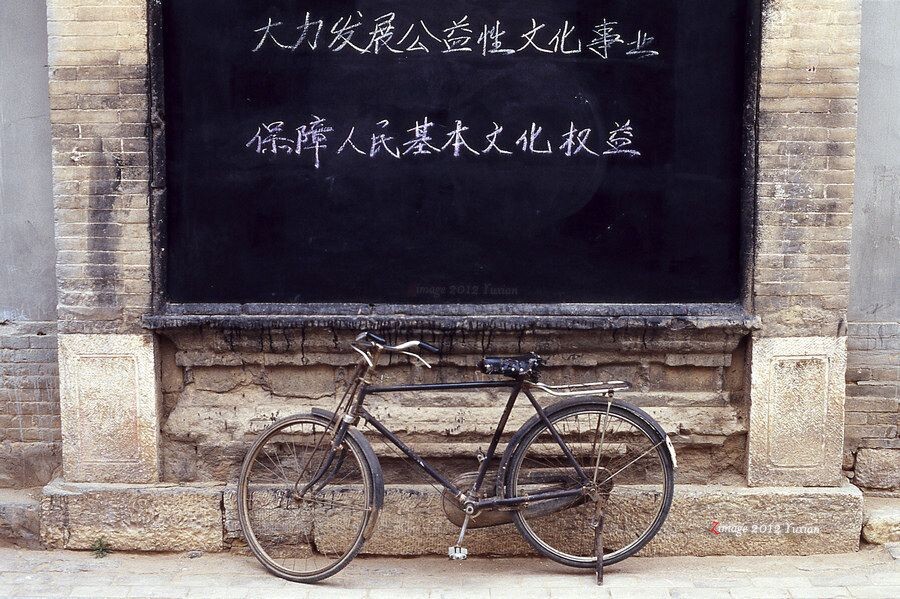 大力发展公益性文化事业
保障人民基本文化权益
image 2012 Yuxian
Zimage 2012 Yuxian